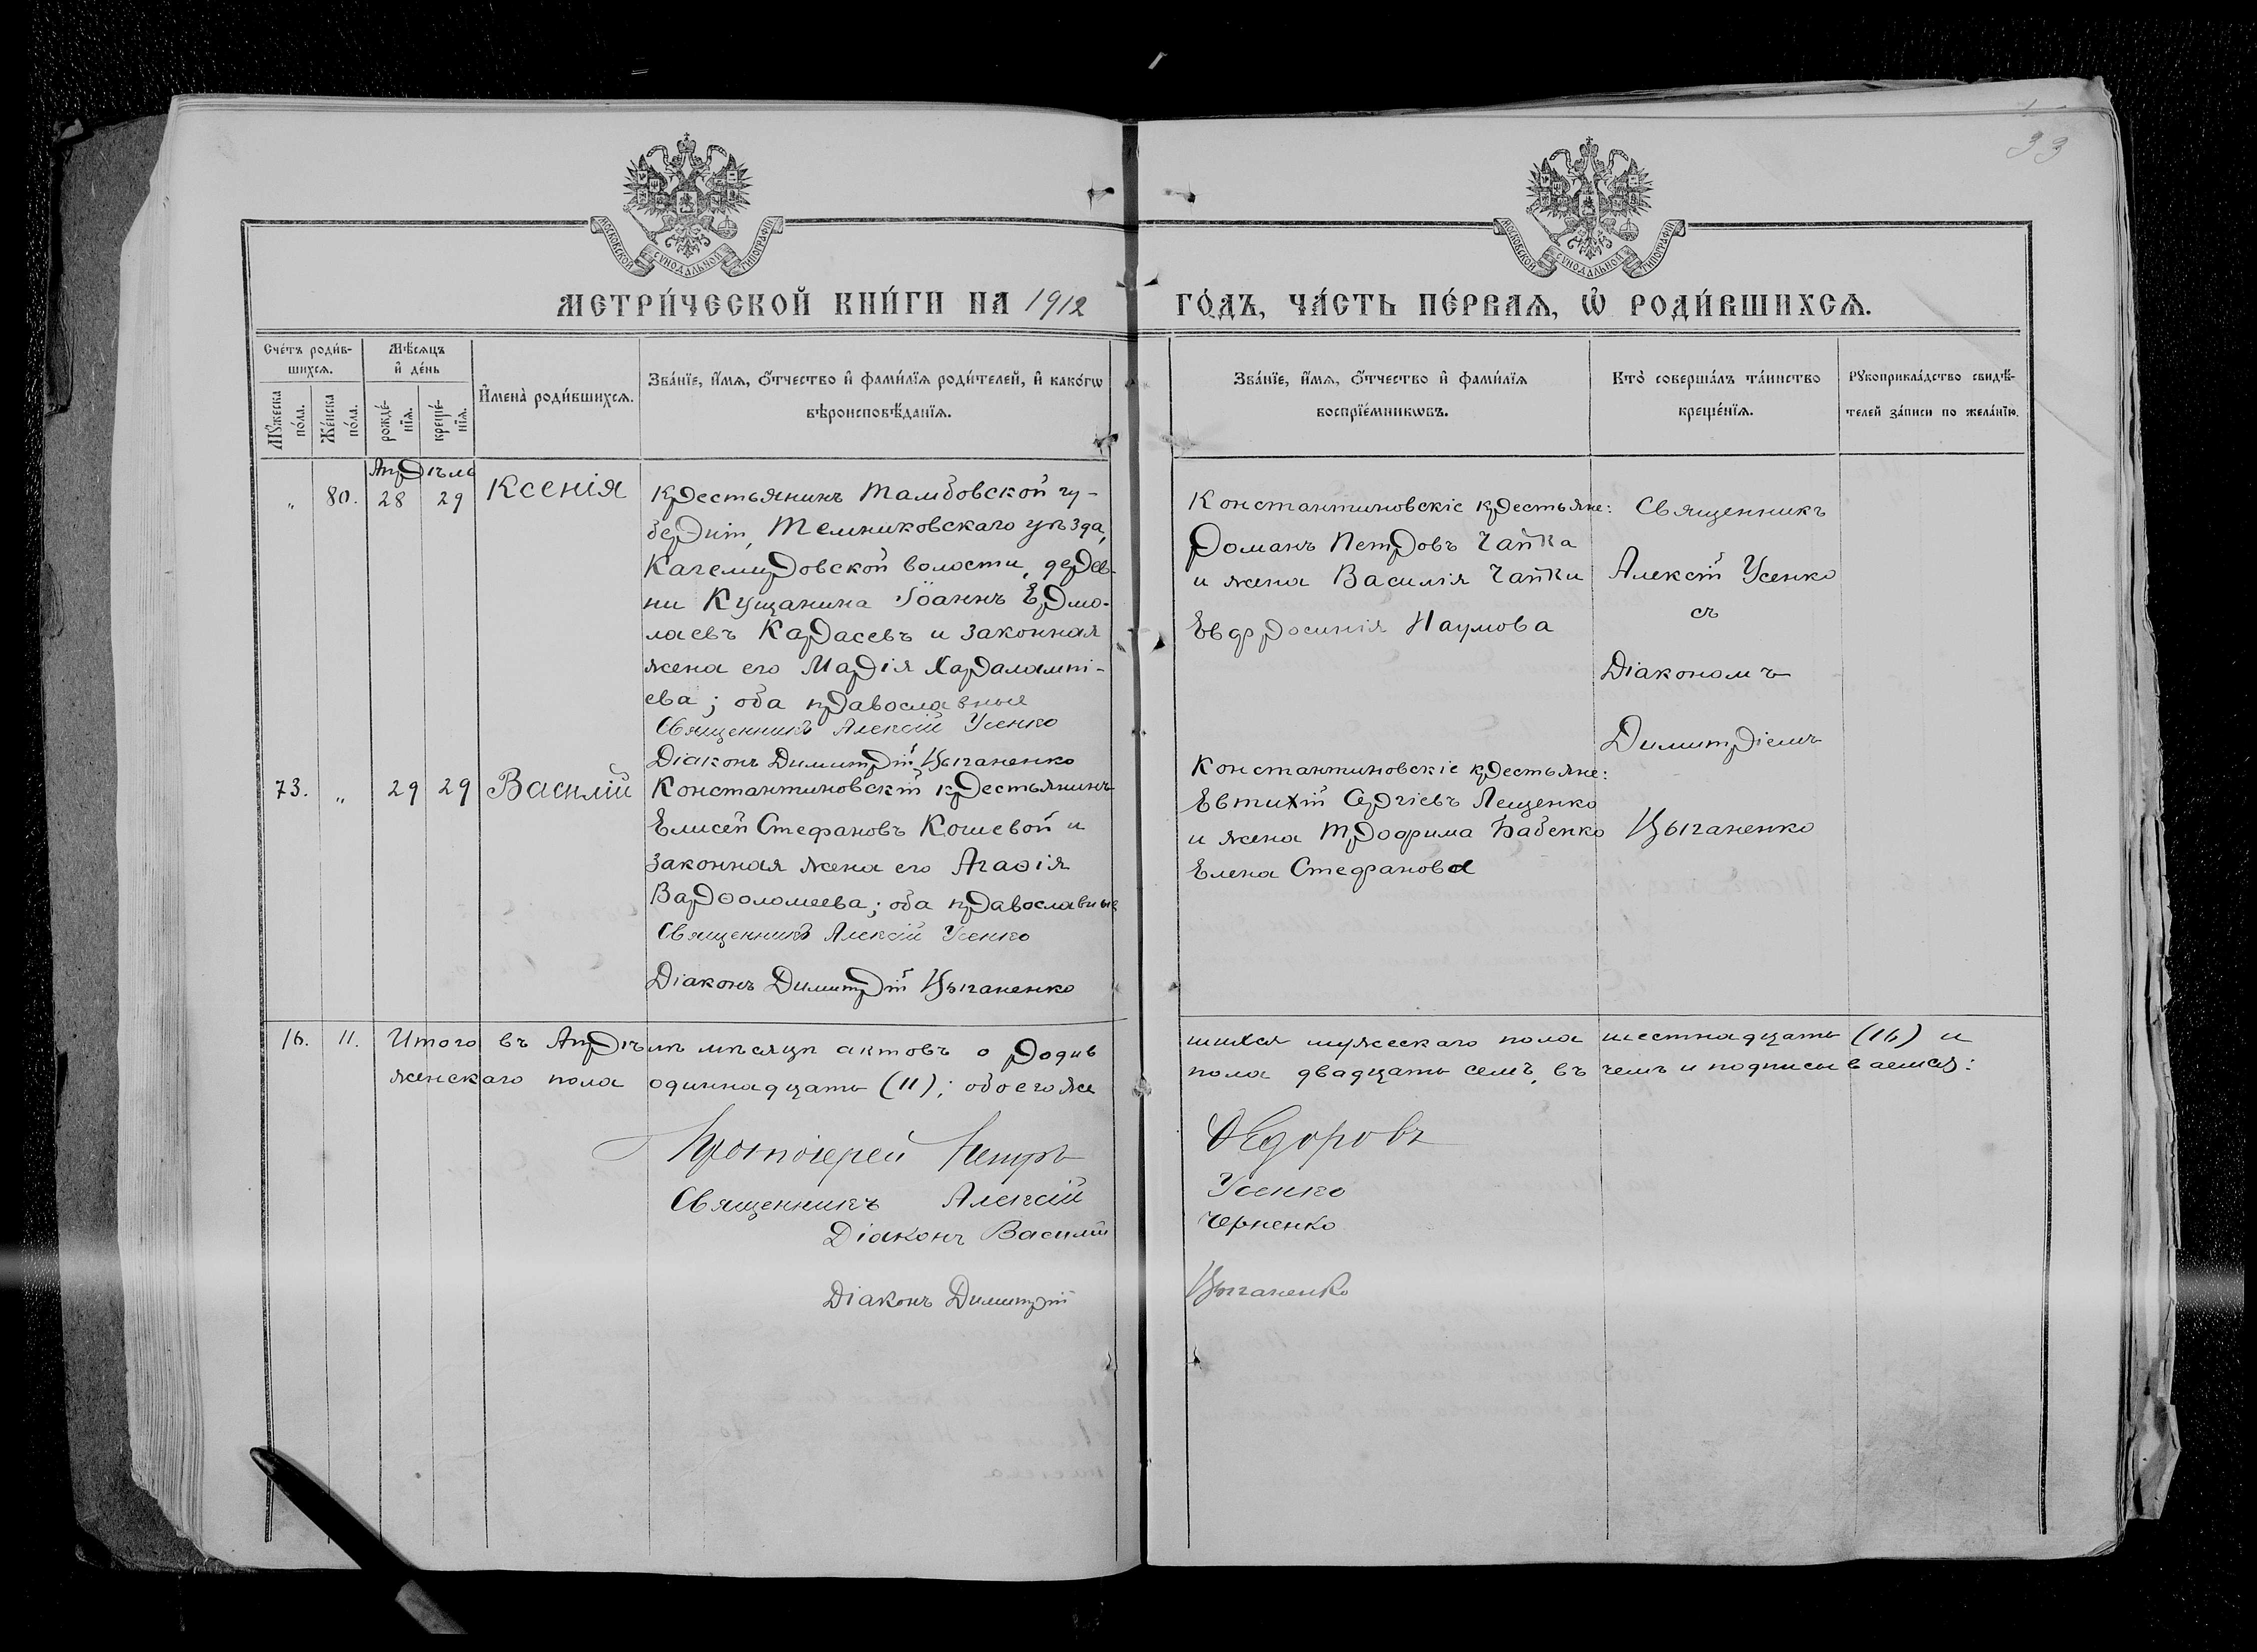 33
МОСКОВСКОЙ СѴНОДАЛЬНОЙ ТИПОГРАФІИ
МОСКОВСКОЙ СѴНОДАЛЬНОЙ ТИПОГРАФІИ
МЕТРИ́ЧЕСКОЙ КНИ́ГИ НА 1912 ГО́ДЪ, ЧА́СТЬ ПЕ́РВАѦ, Ѡ҆ РОДИ́ВШИХСѦ.
Сче́тъ роди́в-
шихсѧ.
Мꙋ́жеска
по́ла.
Же́нска
по́ла.
Мѣ́сѧцъ
и҆ де́нь
рожде́-
нїѧ.
креще́-
нїѧ.
И҆мена̀ роди́вшихсѧ.
Зва́нїе, и҆́мѧ, ѻ҆́тчество и҆ фами́лїѧ роди́телей, и҆ како́гѡ
вѣроисповѣ́данїѧ.
Зва́нїе, и҆́мѧ, ѻ҆́тчество и҆ фами́лїѧ
воспрїе́мникѡвъ.
Кто̀ соверша́лъ та́инство
креще́нїѧ.
Рꙋкоприкла́дство свидѣ́-
телей за́писи по жела́нїю.
Апрѣль
" 80. 28 29 Ксенія
Крестьянинъ Тамбовской гу-
берніи, Темниковскаго уѣзда,
Качемировской волости, дерев-
ни Кущанина Іоаннъ Ермо-
лаевъ Карасевъ и законная
жена его Марія Харалампі-
ева; оба православные
Священникъ Алексій Усенко
Діаконъ Димитрій Цыганенко
Константиновскіе крестьяне:
Романъ Петровъ Чайка
и жена Василія Чайки
Евфросинія Наумова
Священникъ
Алексій Усенко
съ
Діакономъ
Димитріемъ
Цыганенко
73. " 29 29 Василій
Константиновскій крестьянинъ
Елисей Стефановъ Кошевой и
законная жена его Агаѳія
Варѳоломеева; оба православные
Священникъ Алексій Усенко
Діаконъ Димитрій Цыганенко
Константиновскіе крестьяне:
Евтихій Сергіевъ Лещенко
и жена Трофима Бабенко
Елена Стефанова
16. 11. Итого въ Апрѣлѣ мѣсяцѣ актовъ о родив шихся мужескаго пола шестнадцать (16) и
женскаго пола одиннадцать (11); обоего же пола двадцать семь, въ чемъ и подписываемся:
Протоіерей Петръ Ѳедоровъ
Священникъ Алексій Усенко
Діаконъ Василій Черненко
Діаконъ Димитрій Цыганенко